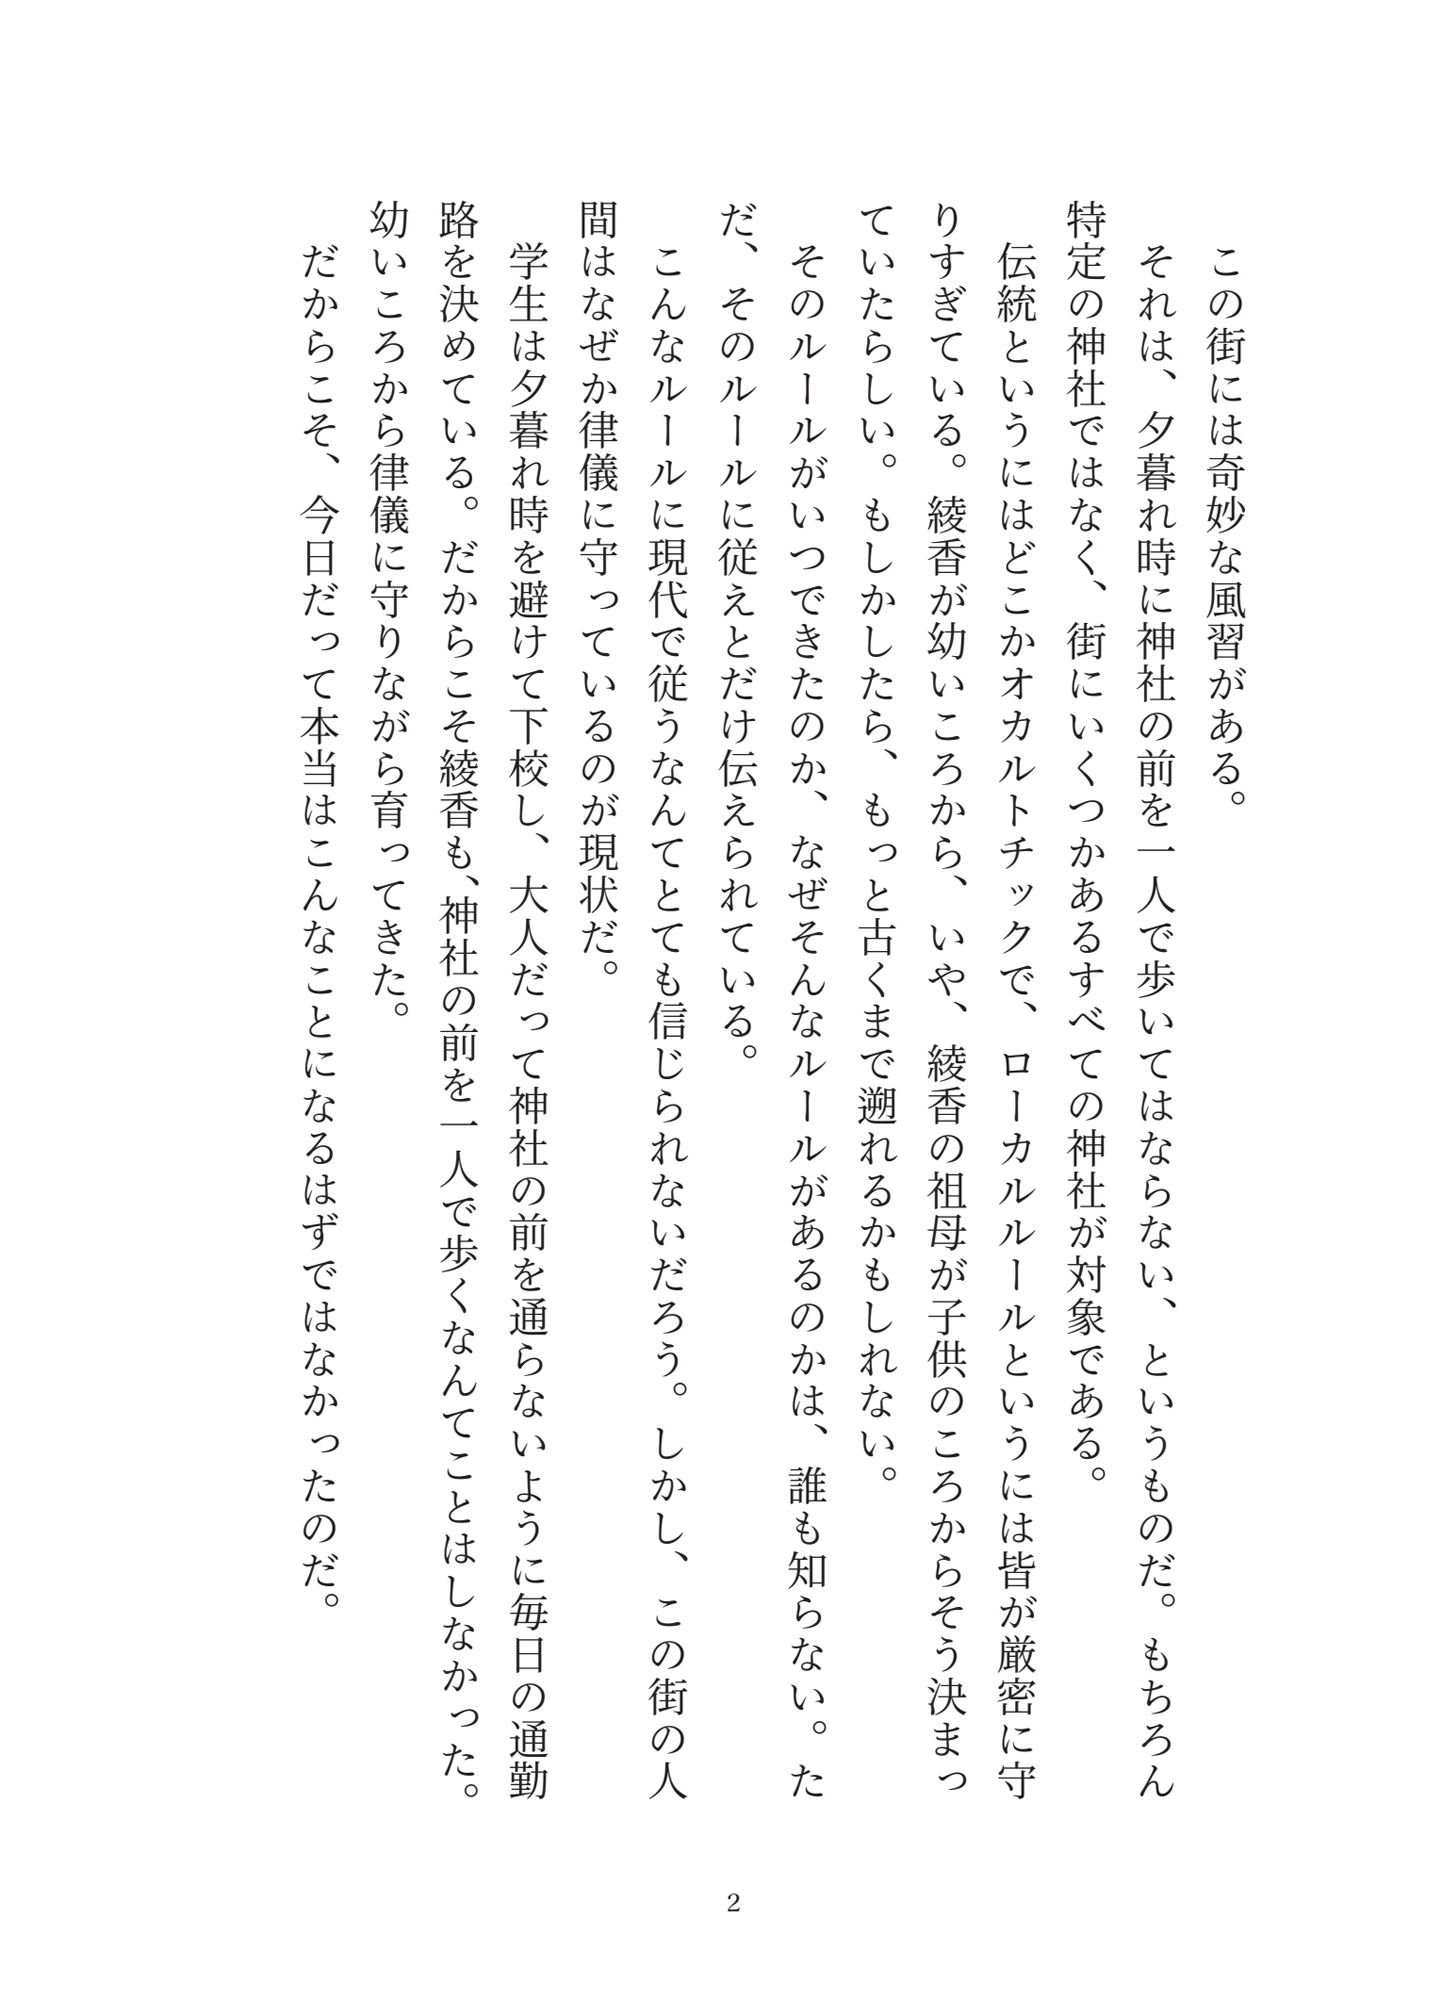 この街には奇妙な風習がある。
　それは、夕暮れ時に神社の前を一人で歩いてはならない、というものだ。もちろん
特定の神社ではなく、街にいくつかあるすべての神社が対象である。
　伝統というにはどこかオカルトチックで、ローカルルールというには皆が厳密に守
りすぎている。綾香が幼いころから、いや、綾香の祖母が子供のころからそう決まっ
ていたらしい。もしかしたら、もっと古くまで遡れるかもしれない。
　そのルールがいつできたのか、なぜそんなルールがあるのかは、誰も知らない。た
だ、そのルールに従えとだけ伝えられている。
　こんなルールに現代で従うなんてとても信じられないだろう。しかし、この街の人
間はなぜか律儀に守っているのが現状だ。
　学生は夕暮れ時を避けて下校し、大人だって神社の前を通らないように毎日の通勤
路を決めている。だからこそ綾香も、神社の前を一人で歩くなんてことはしなかった。
幼いころから律儀に守りながら育ってきた。
　だからこそ、今日だって本当はこんなことになるはずではなかったのだ。
2